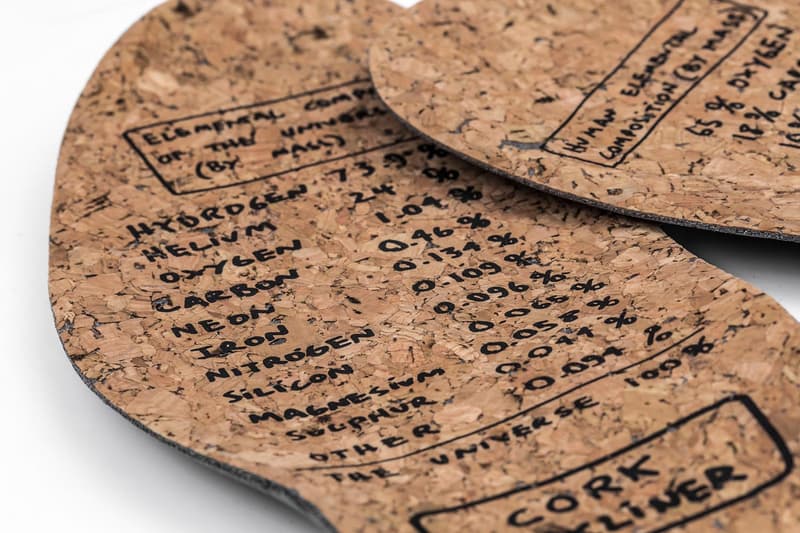 ELEMENTAL COMP
OF THE UNIVER
(BY MASS)
HYDROGEN 73.9 %
HELIUM 24 %
OXYGEN 1.04 %
CARBON 0.46 %
NEON 0.134 %
IRON 0.109 %
NITROGEN 0.096 %
SILICON 0.065 %
MAGNESIUM 0.058 %
SULPHUR 0.044 %
OTHER 0.094 %
THE UNIVERSE 100 %
CORK
LINER
HUMAN ELEMENTAL
COMPOSITION (BY MASS)
65 % OXYGEN
18 % CAR